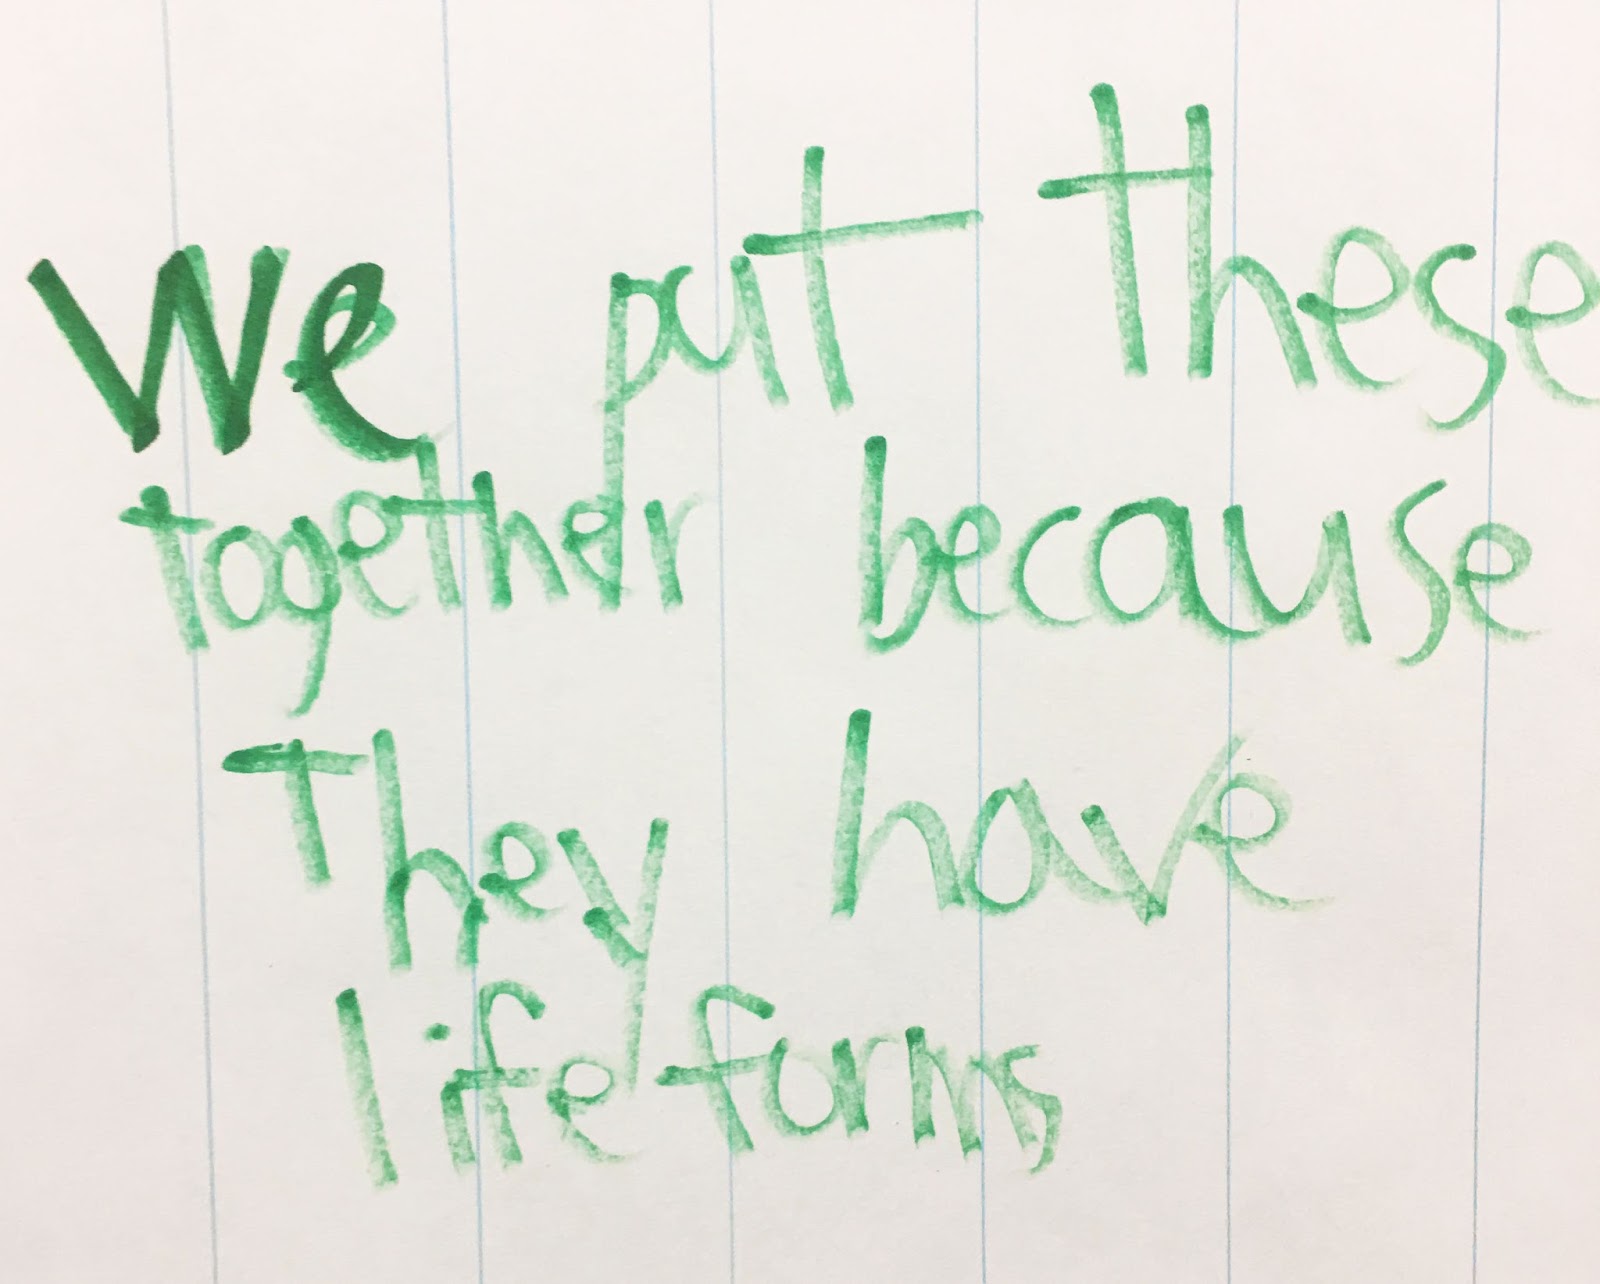 We put these
together because
They have
life forms